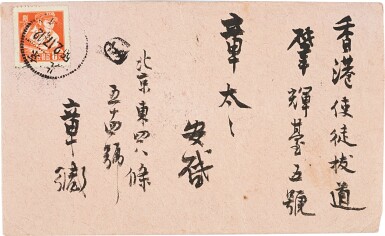 香港使徒拔道
肇輝臺五號
章太〻
安啓
北京東四八條
五十四號
章緘